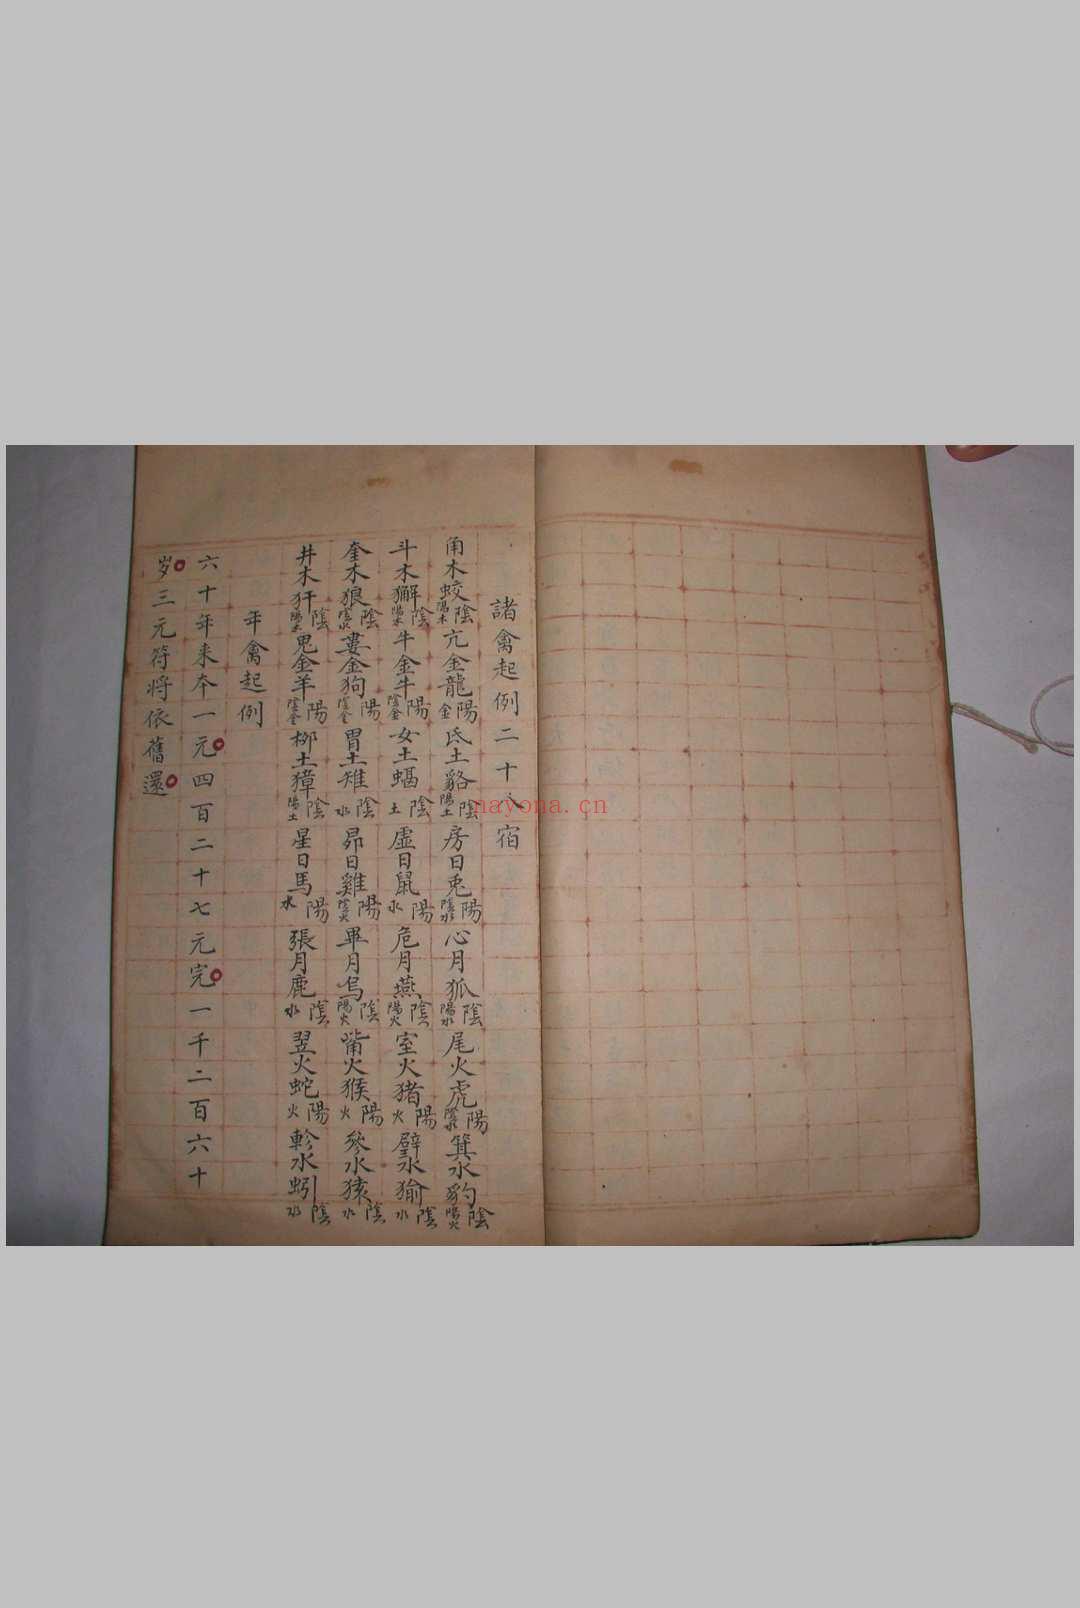 諸禽起例二十八宿
角木蛟陰陽木亢金龍陽金氐土貉陰陽土房日兎陽陰水心月狐陰陽水尾火虎陽陰水箕水豹陰陽火
斗木獬陰陽木牛金牛陽陰金女土蝠陰土虛日鼠陽水危月燕陰陽火室火猪陽火壁水㺄陰水
奎木狼陰陰水婁金狗陽陰金胃土雉陰水昴日雞陽陰火畢月烏陰陽火觜火猴陽火參水猿陰水
井木犴陰陽木鬼金羊陽陰金柳土獐陰陽土星日馬陽水張月鹿陰水翌火蛇陽火軫水蚓陰水
年禽起例
六十年来夲一元四百二十七元完一千二百六十
岁三元符将依舊還
nayona.cn